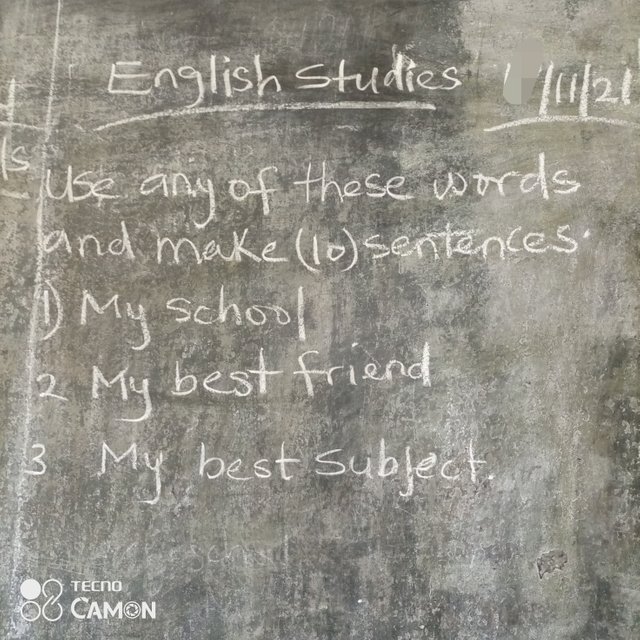 English Studies /11/21
use any of these words
and make (10) sentences.
1) My school
2 My best friend
3 My best Subject.
TECNO
CAMON